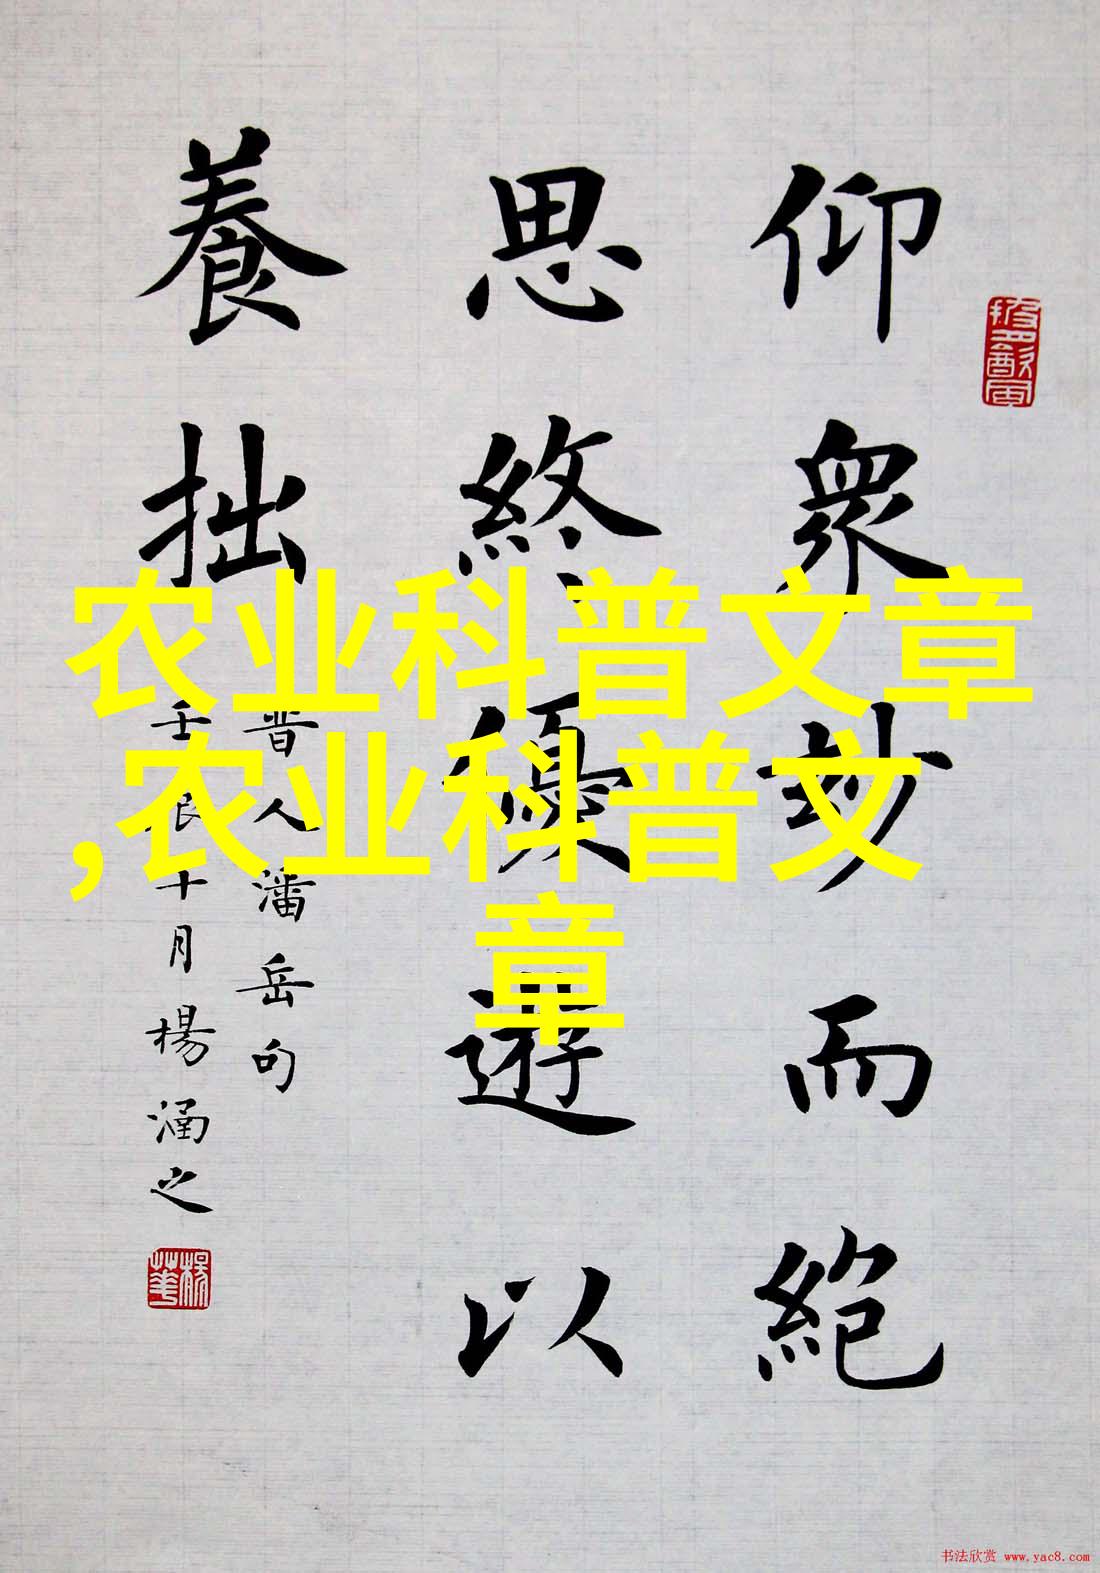 仰衆妙而絶
思終優遊以
養拙
晋人潘岳句
壬辰十月楊涵之
楊華
农业科普文章
,农业科普文
章
书法欣赏 www.yac8.com